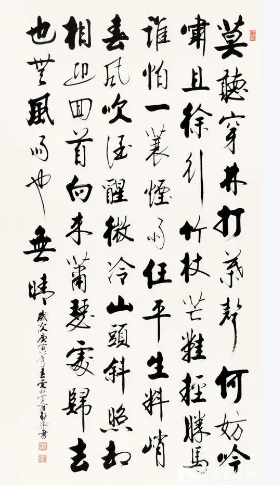 莫聽穿林打葉聲何妨吟
嘯且徐行竹杖芒鞋輕勝馬
誰怕一蓑煙雨任平生料峭
春風吹酒醒微冷山頭斜照却
相迎回首向來蕭瑟處歸去
也無風雨也無晴
歲次庚寅